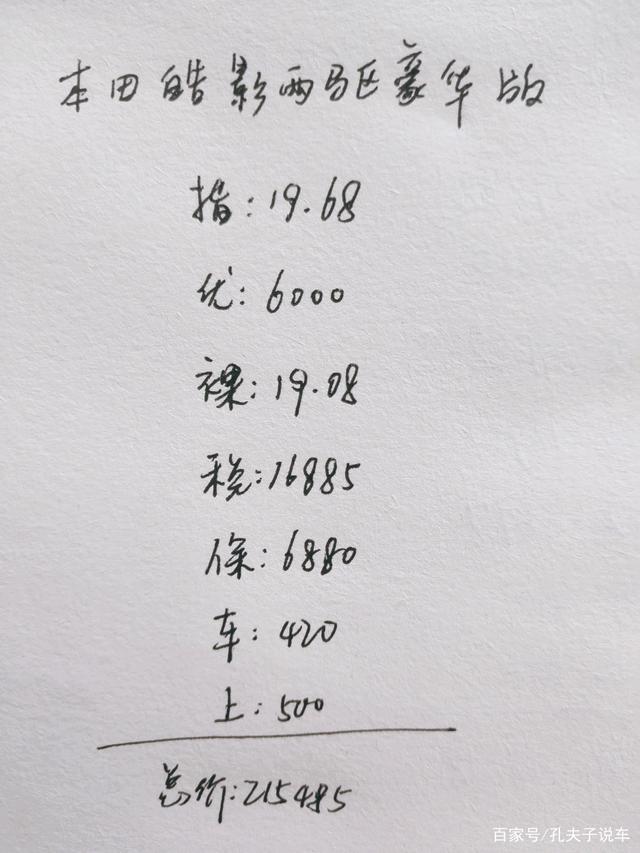 本田皓影两驱豪华版
指:19.68
优:6000
裸:19.08
税:16885
保:6880
车:420
上:500
总价:215485
百家号/孔夫子说车